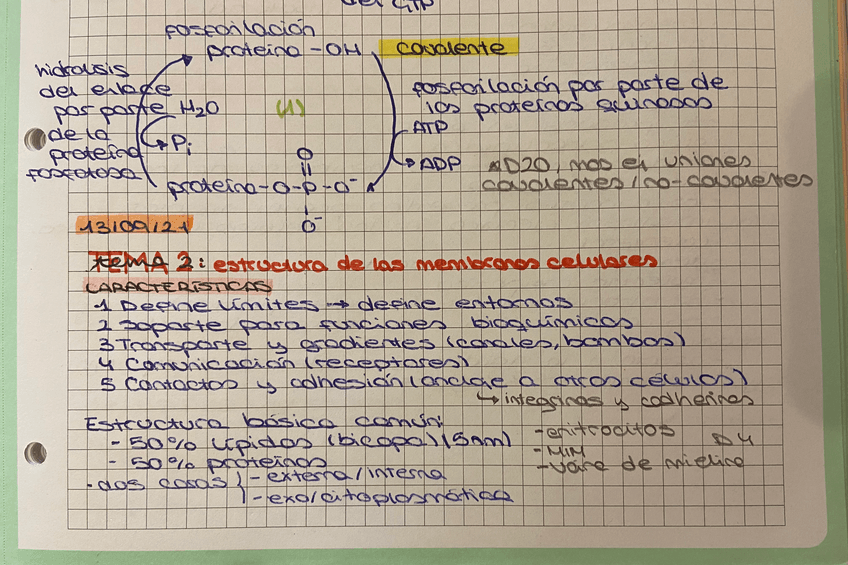 del GTP
fosforilación
proteína-OH covalente
hidrolisis
del enlace
por parte
de la
proteína
fosfatasa
H2O
Pi
(1)
fosforilación por parte de
las proteínas quinasas
ATP
ADP
D20, mas en uniones
covalentes/no-covalentes
O
||
proteína-O-P-O⁻
|
O⁻
13/09/21
TEMA 2: estructura de las membranas celulares
CARACTERÍSTICAS
1 Define límites → define entornos
2 Soporte para funciones bioquímicas
3 Transporte y gradientes (canales, bombas)
4 Comunicación (receptores)
5 Contactos y adhesión (anclaje a otras células)
↳ integrinas y cadherinas
Estructura básica común:
- 50% lípidos (bicapa) (5nm)
- 50% proteínas
-eritrocitos
-MIM
-vaina de mielina
D4
· dos caras { - externa/interna
- exo/citoplasmática